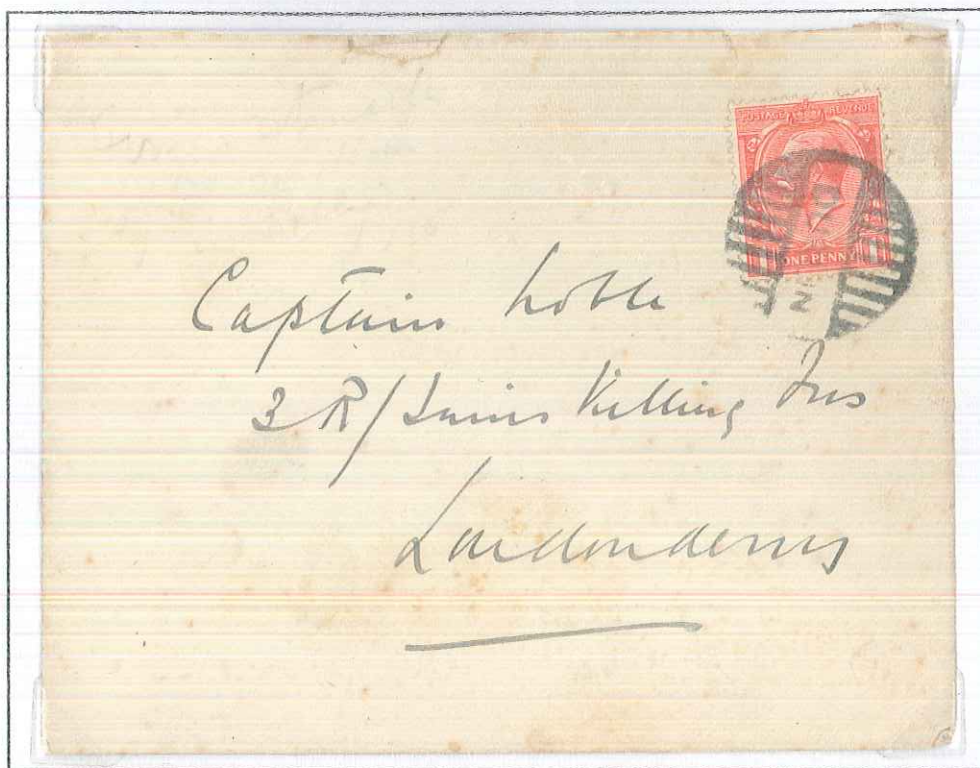 POSTAGE REVENUE
ONE PENNY
Captain Noble
3 R/Innis Killing Fus
Londonderry